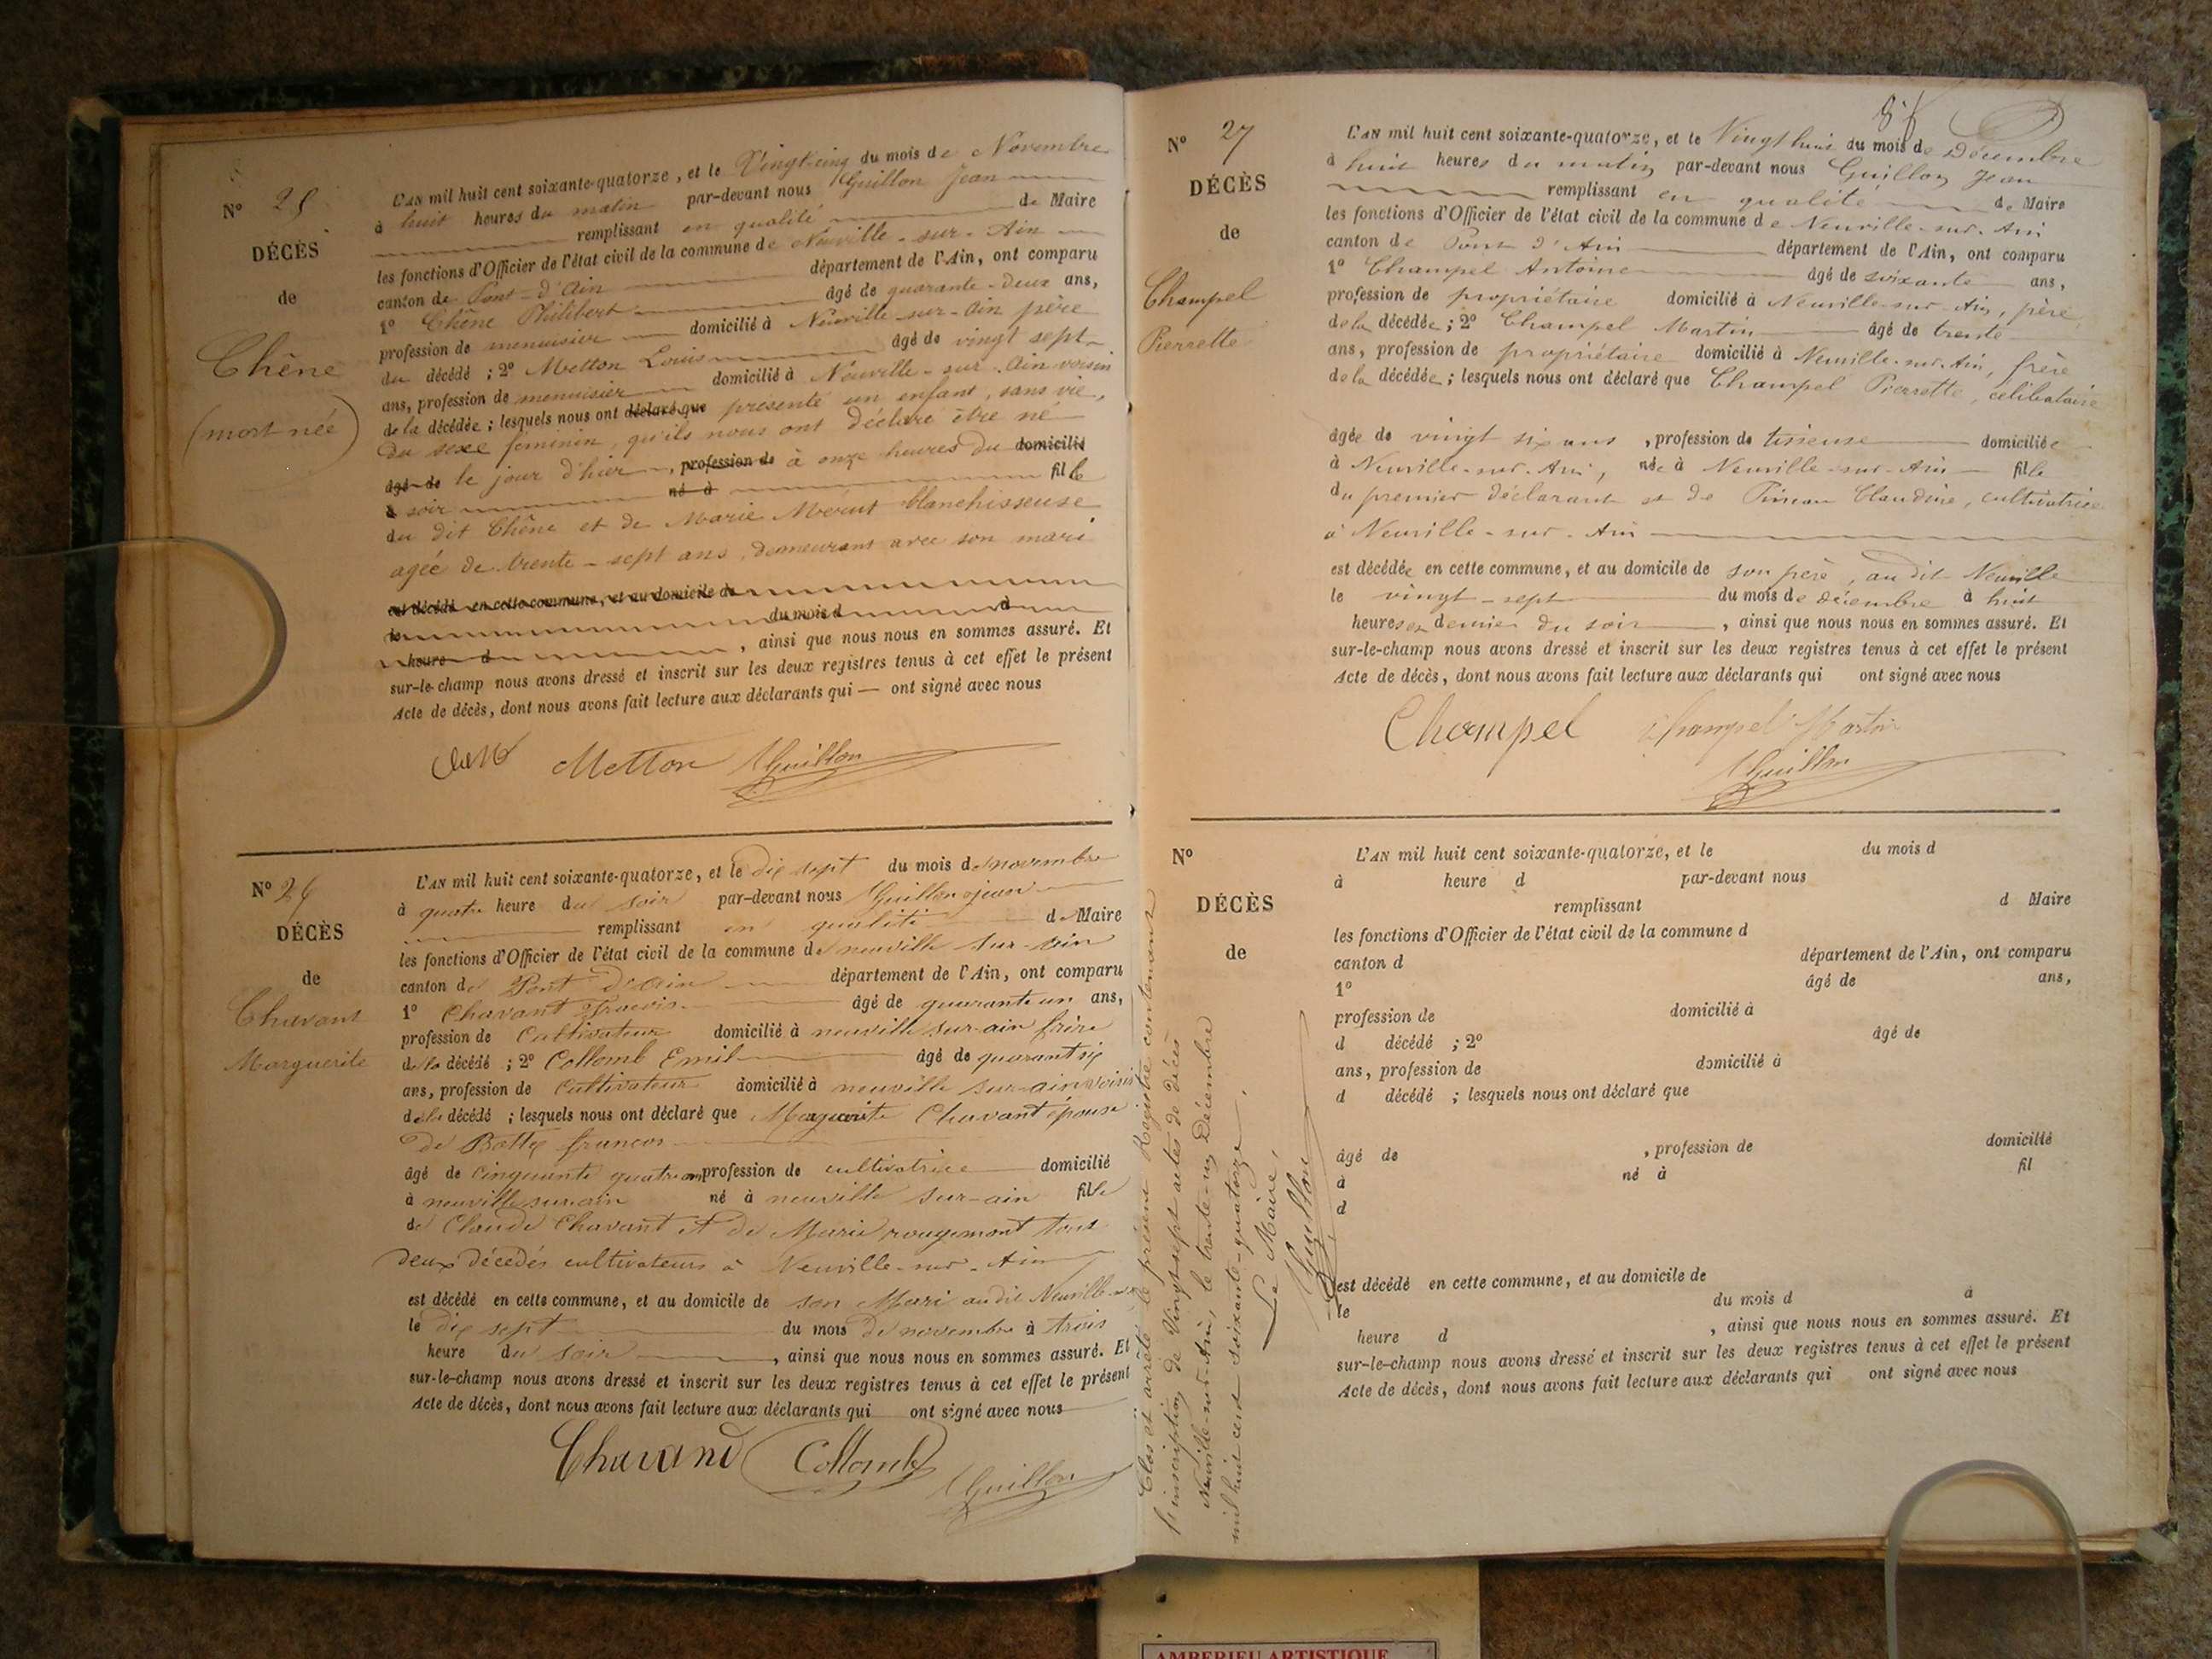 Nº 25
DÉCÈS
de
Chêne
(mort née)
L'AN mil huit cent soixante-quatorze, et le Vingt-cinq du mois de Novembre
à huit heures du matin par-devant nous Guillon Jean
remplissant en qualité de Maire
les fonctions d'Officier de l'état civil de la commune de Neuville-sur-Ain
canton de Pont-d'Ain département de l'Ain, ont comparu
1º Chêne Philibert âgé de quarante-deux ans,
profession de menuisier domicilié à Neuville-sur-Ain père
du décédé ; 2º Metton Louis âgé de vingt sept
ans, profession de menuisier domicilié à Neuville-sur-Ain voisin
de la décédée ; lesquels nous ont déclaré que présenté un enfant, sans vie,
du sexe féminin, qu'ils nous ont déclaré être né
âgé de le jour d'hier, profession de à onze heures du domicilié
à soir né à fille
du dit Chêne et de Marie blanchisseuse
agée de trente-sept ans, demeurant avec son mari
est décédé en cette commune, et au domicile de
le du mois d à
heure d , ainsi que nous nous en sommes assuré. Et
sur-le-champ nous avons dressé et inscrit sur les deux registres tenus à cet effet le présent
Acte de décès, dont nous avons fait lecture aux déclarants qui — ont signé avec nous
Metton JGuillon
Nº 26
DÉCÈS
de
Chavant
Marguerite
L'AN mil huit cent soixante-quatorze, et le dix sept du mois de novembre
à quatre heure du soir par-devant nous Guillon jean
remplissant en qualité de Maire
les fonctions d'Officier de l'état civil de la commune de neuville sur-ain
canton de Pont d'Ain département de l'Ain, ont comparu
1º Chavant âgé de quarante un ans,
profession de Cultivateur domicilié à neuville sur-ain frère
de la décédé ; 2º Collomb Emile âgé de quarant six
ans, profession de Cultivateur domicilié à neuville sur-ain voisin
de la décédé ; lesquels nous ont déclaré que Marguerite Chavant épouse
de francois
âgé de Cinquante quatre ans profession de cultivatrice domicilié
à neuville sur-ain né à neuville sur-ain fille
de Claude Chavant et de Marie rougemont tous
deux décédés cultivateurs à Neuville-sur-Ain
est décédé en cette commune, et au domicile de son Mari audit Neuville
le dix sept du mois de novembre à trois
heure du soir , ainsi que nous nous en sommes assuré. Et
sur-le-champ nous avons dressé et inscrit sur les deux registres tenus à cet effet le présent
Acte de décès, dont nous avons fait lecture aux déclarants qui ont signé avec nous
Chavand Collomb JGuillon
Nº 27
DÉCÈS
de
Champel
Pierrette
L'AN mil huit cent soixante-quatorze, et le Vingt huit du mois de Décembre
à huit heures du matin par-devant nous Guillon Jean
remplissant en qualité de Maire
les fonctions d'Officier de l'état civil de la commune de Neuville-sur-Ain
canton de Pont d'Ain département de l'Ain, ont comparu
1º Champel Antoine âgé de soixante ans,
profession de propriétaire domicilié à Neuville-sur-Ain, père
de la décédée ; 2º Champel Martin âgé de trente
ans, profession de propriétaire domicilié à Neuville-sur-Ain, frère
de la décédée ; lesquels nous ont déclaré que Champel Pierrette, célibataire
âgée de vingt six ans , profession de tisseuse domiciliée
à Neuville-sur-Ain, née à Neuville-sur-Ain fille
du premier déclarant et de Claudine, cultivatrice
à Neuville-sur-Ain
est décédée en cette commune, et au domicile de son père, au dit Neuville
le vingt-sept du mois de décembre à huit
heures du soir , ainsi que nous nous en sommes assuré. Et
sur-le-champ nous avons dressé et inscrit sur les deux registres tenus à cet effet le présent
Acte de décès, dont nous avons fait lecture aux déclarants qui ont signé avec nous
Champel Champel Martin
JGuillon
Nº
DÉCÈS
de
L'AN mil huit cent soixante-quatorze, et le du mois d
à heure d par-devant nous
remplissant d Maire
les fonctions d'Officier de l'état civil de la commune d
canton d département de l'Ain, ont comparu
1º âgé de ans,
profession de domicilié à
d décédé ; 2º âgé de
ans, profession de domicilié à
d décédé ; lesquels nous ont déclaré que
âgé de , profession de domicilié
à né à fil
d
est décédé en cette commune, et au domicile de
le du mois d à
heure d , ainsi que nous nous en sommes assuré. Et
sur-le-champ nous avons dressé et inscrit sur les deux registres tenus à cet effet le présent
Acte de décès, dont nous avons fait lecture aux déclarants qui ont signé avec nous
Clos et arrêté le présent Registre contenant
l'inscription de Vingt-sept actes de décès
Neuville-sur-Ain, le trente-un Décembre
mil huit cent soixante-quatorze.
Le Maire,
JGuillon
AMBERIEU ARTISTIQUE